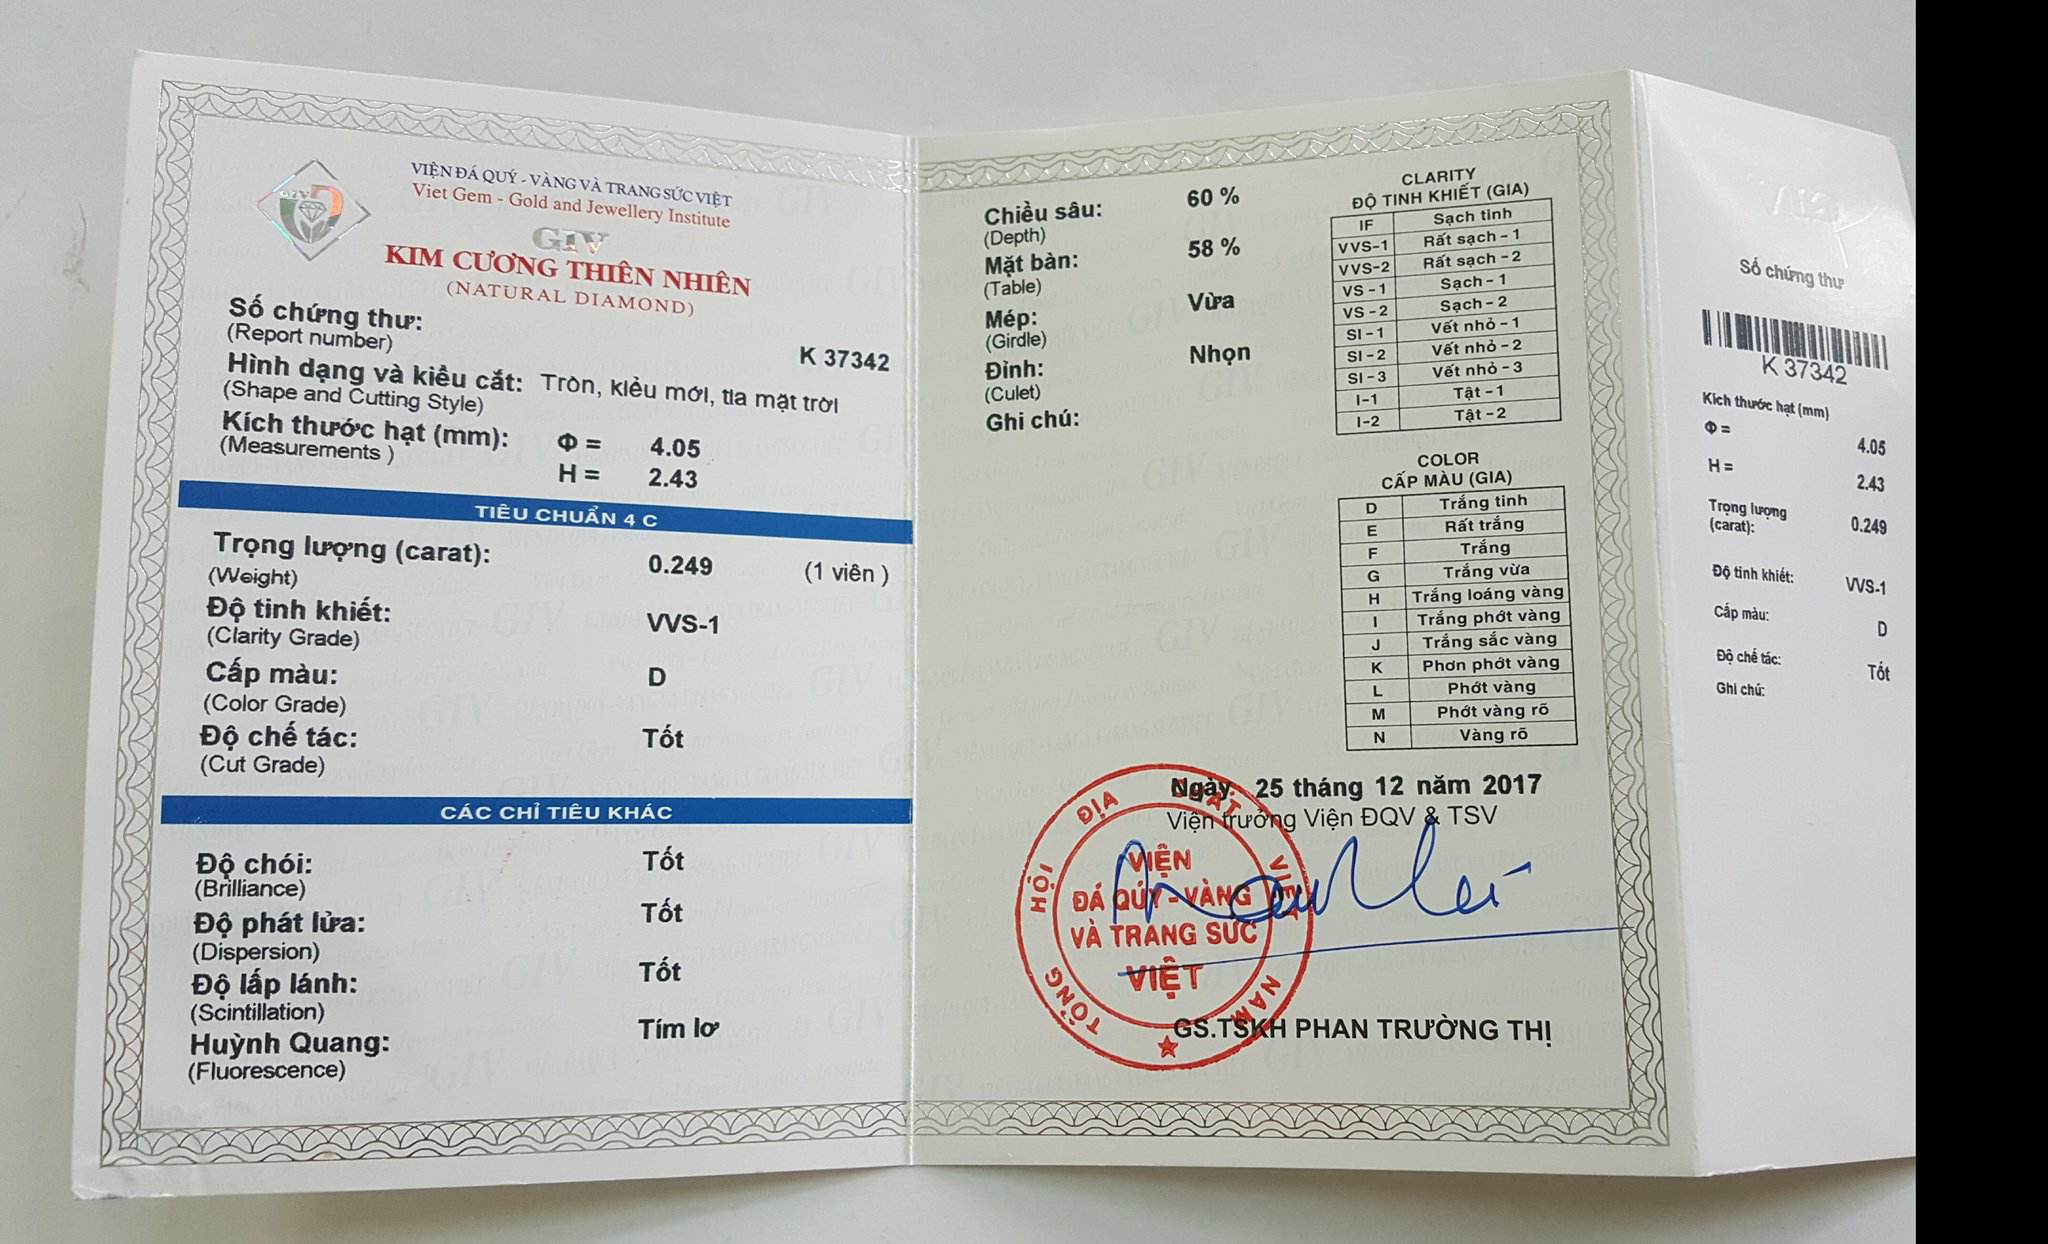 VIỆN ĐÁ QUÝ - VÀNG VÀ TRANG SỨC VIỆT
Viet Gem - Gold and Jewellery Institute
GIV
KIM CƯƠNG THIÊN NHIÊN
(NATURAL DIAMOND)
Số chứng thư: K 37342
(Report number)
Hình dạng và kiểu cắt: Tròn, kiểu mới, tia mặt trời
(Shape and Cutting Style)
Kích thước hạt (mm): Φ = 4.05
(Measurements ) H = 2.43
TIÊU CHUẨN 4 C
Trọng lượng (carat): 0.249 (1 viên )
(Weight)
Độ tinh khiết: VVS-1
(Clarity Grade)
Cấp màu: D
(Color Grade)
Độ chế tác: Tốt
(Cut Grade)
CÁC CHỈ TIÊU KHÁC
Độ chói: Tốt
(Brilliance)
Độ phát lửa: Tốt
(Dispersion)
Độ lấp lánh: Tốt
(Scintillation)
Huỳnh Quang: Tím lơ
(Fluorescence)
Chiều sâu: 60 %
(Depth)
Mặt bàn: 58 %
(Table)
Mép: Vừa
(Girdle)
Đỉnh: Nhọn
(Culet)
Ghi chú:
CLARITY
ĐỘ TINH KHIẾT (GIA)
IF Sạch tinh
VVS-1 Rất sạch - 1
VVS-2 Rất sạch - 2
VS - 1 Sạch - 1
VS - 2 Sạch - 2
SI - 1 Vết nhỏ - 1
SI - 2 Vết nhỏ - 2
SI - 3 Vết nhỏ - 3
I-1 Tật - 1
I-2 Tật - 2
COLOR
CẤP MÀU (GIA)
D Trắng tinh
E Rất trắng
F Trắng
G Trắng vừa
H Trắng loáng vàng
I Trắng phớt vàng
J Trắng sắc vàng
K Phơn phớt vàng
L Phớt vàng
M Phớt vàng rõ
N Vàng rõ
Ngày 25 tháng 12 năm 2017
Viện trưởng Viện ĐQV & TSV
TỔNG HỘI ĐỊA CHẤT VIỆT NAM
VIỆN
ĐÁ QÚY - VÀNG
VÀ TRANG SỨC
VIỆT
GS.TSKH PHAN TRƯỜNG THỊ
Số chứng thư
K 37342
Kích thước hạt (mm)
Φ = 4.05
H = 2.43
Trọng lượng
(carat): 0.249
Độ tinh khiết: VVS-1
Cấp màu: D
Độ chế tác: Tốt
Ghi chú: